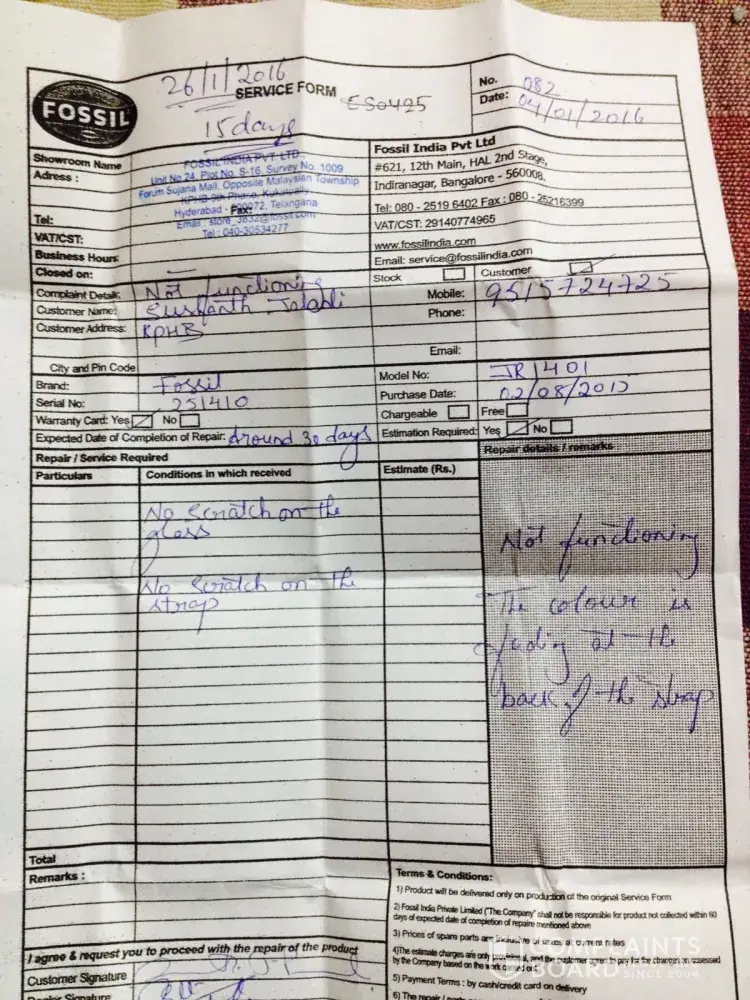 26/1/2016
SERVICE FORM
ES0425
No. 082
Date: 04/01/2016
FOSSIL
15 days
Showroom Name
Adress :
FOSSIL INDIA PVT. LTD
Unit No 24, Plot No. S-16, Survey No. 1009
Forum Sujana Mall, Opposite Malaysian Township
KPHB 9th Phase, Kukatpally
Hyderabad - 500072, Telangana
Email : store_3832@fossil.com
Tel : 040-30534277
Tel:
Fax:
VAT/CST:
Business Hours
Closed on:
Fossil India Pvt Ltd
#621, 12th Main, HAL 2nd Stage,
Indiranagar, Bangalore - 560008.
Tel: 080 - 2519 6402 Fax : 080 - 25216399
VAT/CST: 29140774965
www.fossilindia.com
Email: service@fossilindia.com
Stock Customer
Complaint Details: Not functioning
Customer Name: Sushanth Jaladi
Customer Address: KPHB
Mobile: 9515724725
Phone:
Email:
City and Pin Code
Brand: Fossil
Model No: JR1401
Serial No: 251410
Purchase Date: 02/08/2015
Warranty Card: Yes No
Chargeable Free
Expected Date of Completion of Repair: Around 30 days
Estimation Required: Yes No
Repair / Service Required
Repair details / remarks
Particulars
Conditions in which received
Estimate (Rs.)
No Scratch on the
glass
No Scratch on the
strap
Not functioning
The colour is
fading at the
back of the strap
Total
Remarks :
Terms & Conditions:
1) Product will be delivered only on production of the original Service Form
2) Fossil India Private Limited ("The Company" shall not be responsible for product not collected within 60
days of expected date of completion of repaire mentioned above
3) Prices of spare parts are inclusive of taxes at current rates
4)The estimate charges are only and the customer agree to pay for the charges as assessed
by the Company based on the work carried out
5) Payment Terms : by cash/credit card on delivery
6) The repair / parts
I agree & request you to proceed with the repair of the product
Customer Signature
Dealer Signature
COMPLAINTS
BOARD SINCE 2004